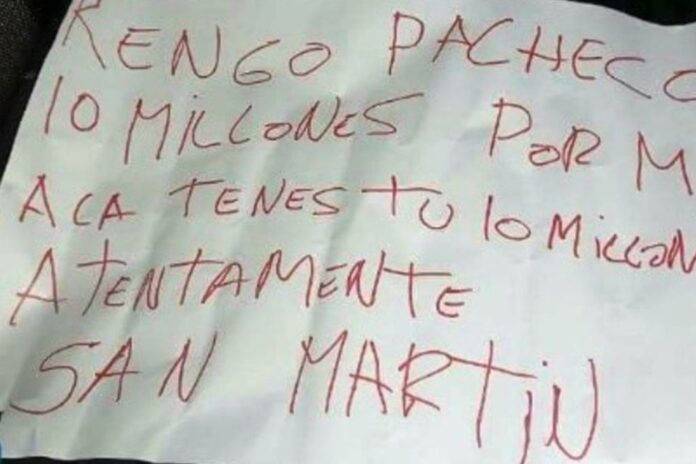 RENGO PACHECO
10 MILLONES POR M
ACA TENES TU 10 MILLON
ATENTAMENTE
SAN MARTIN